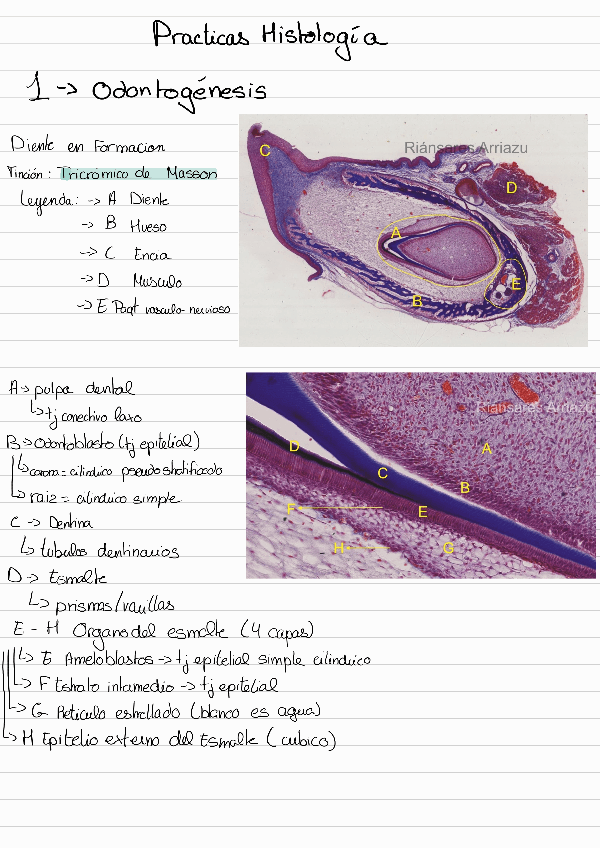 Practicas Histología
1 -> Odontogénesis
Diente en Formacion
Tinción: Tricrómico de Masson
Leyenda: -> A Diente
-> B Hueso
-> C Encia
-> D Musculo
-> E Paqt vasculo-nervioso
Riánsares Arriazu
C
D
A
E
B
A -> pulpa dental
↳ tj conectivo laxo
B -> Odontoblasto (tj epitelial)
↳ corona = cilindrico pseudostratificado
↳ raiz = cilindrico simple
C -> Dentina
↳ tubulos dentinarios
D -> Esmalte
↳ prismas/varillas
E - H Organo del esmalte (4 capas)
↳ E Ameloblastos -> tj epitelial simple cilindrico
↳ F Estrato intamedio -> tj epitelial
↳ G Reticulo estrellado (blanco es agua)
↳ H Epitelio externo del Esmalte (cubico)
Riánsares Arriazu
D
A
C
B
F
E
H
G